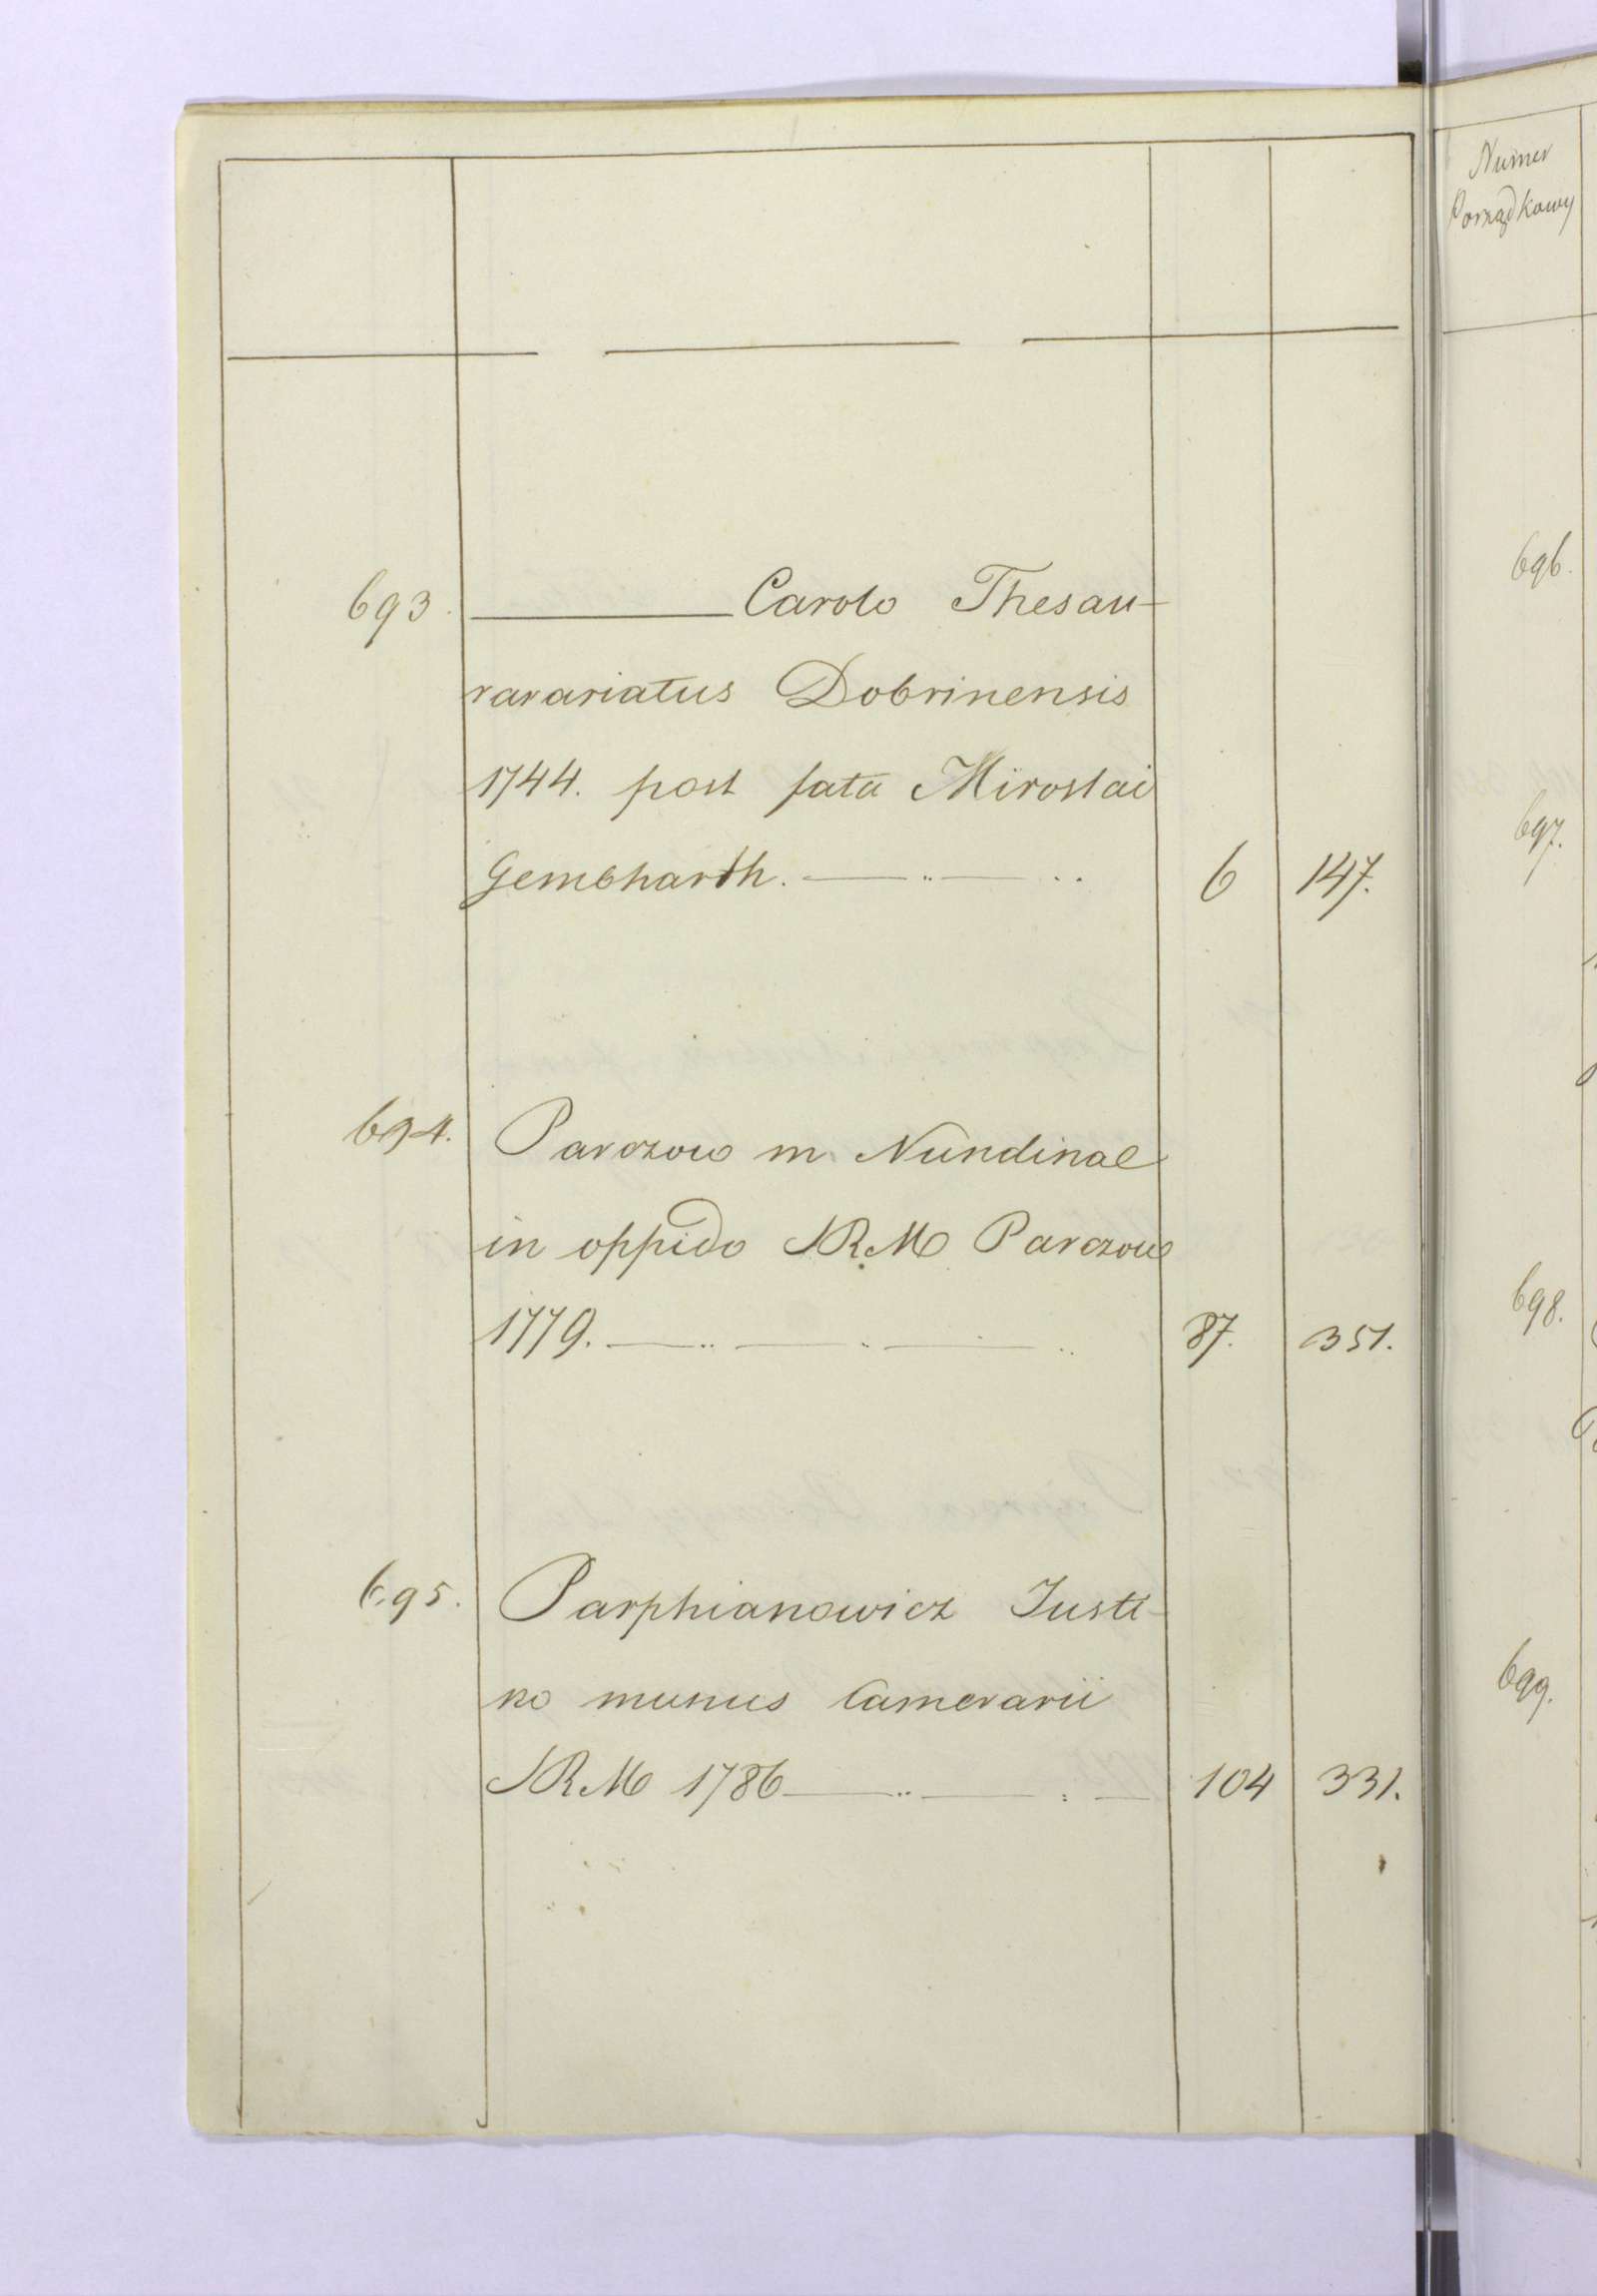 693. ——— Carolo Thesau-
rarariatus Dobrinensis
1744. post fata Miroslai
Gembharth. —..— .. 6 147.
694. Parczow m. Nundinae
in oppido SRM Parczow
1779. —..— .— .. 87. 351.
695. Parphianowicz Justi-
no munus Camerarii
SRM 1786 —..— : — 104 331.
Numer
Porządkowy
696.
697.
698.
699.